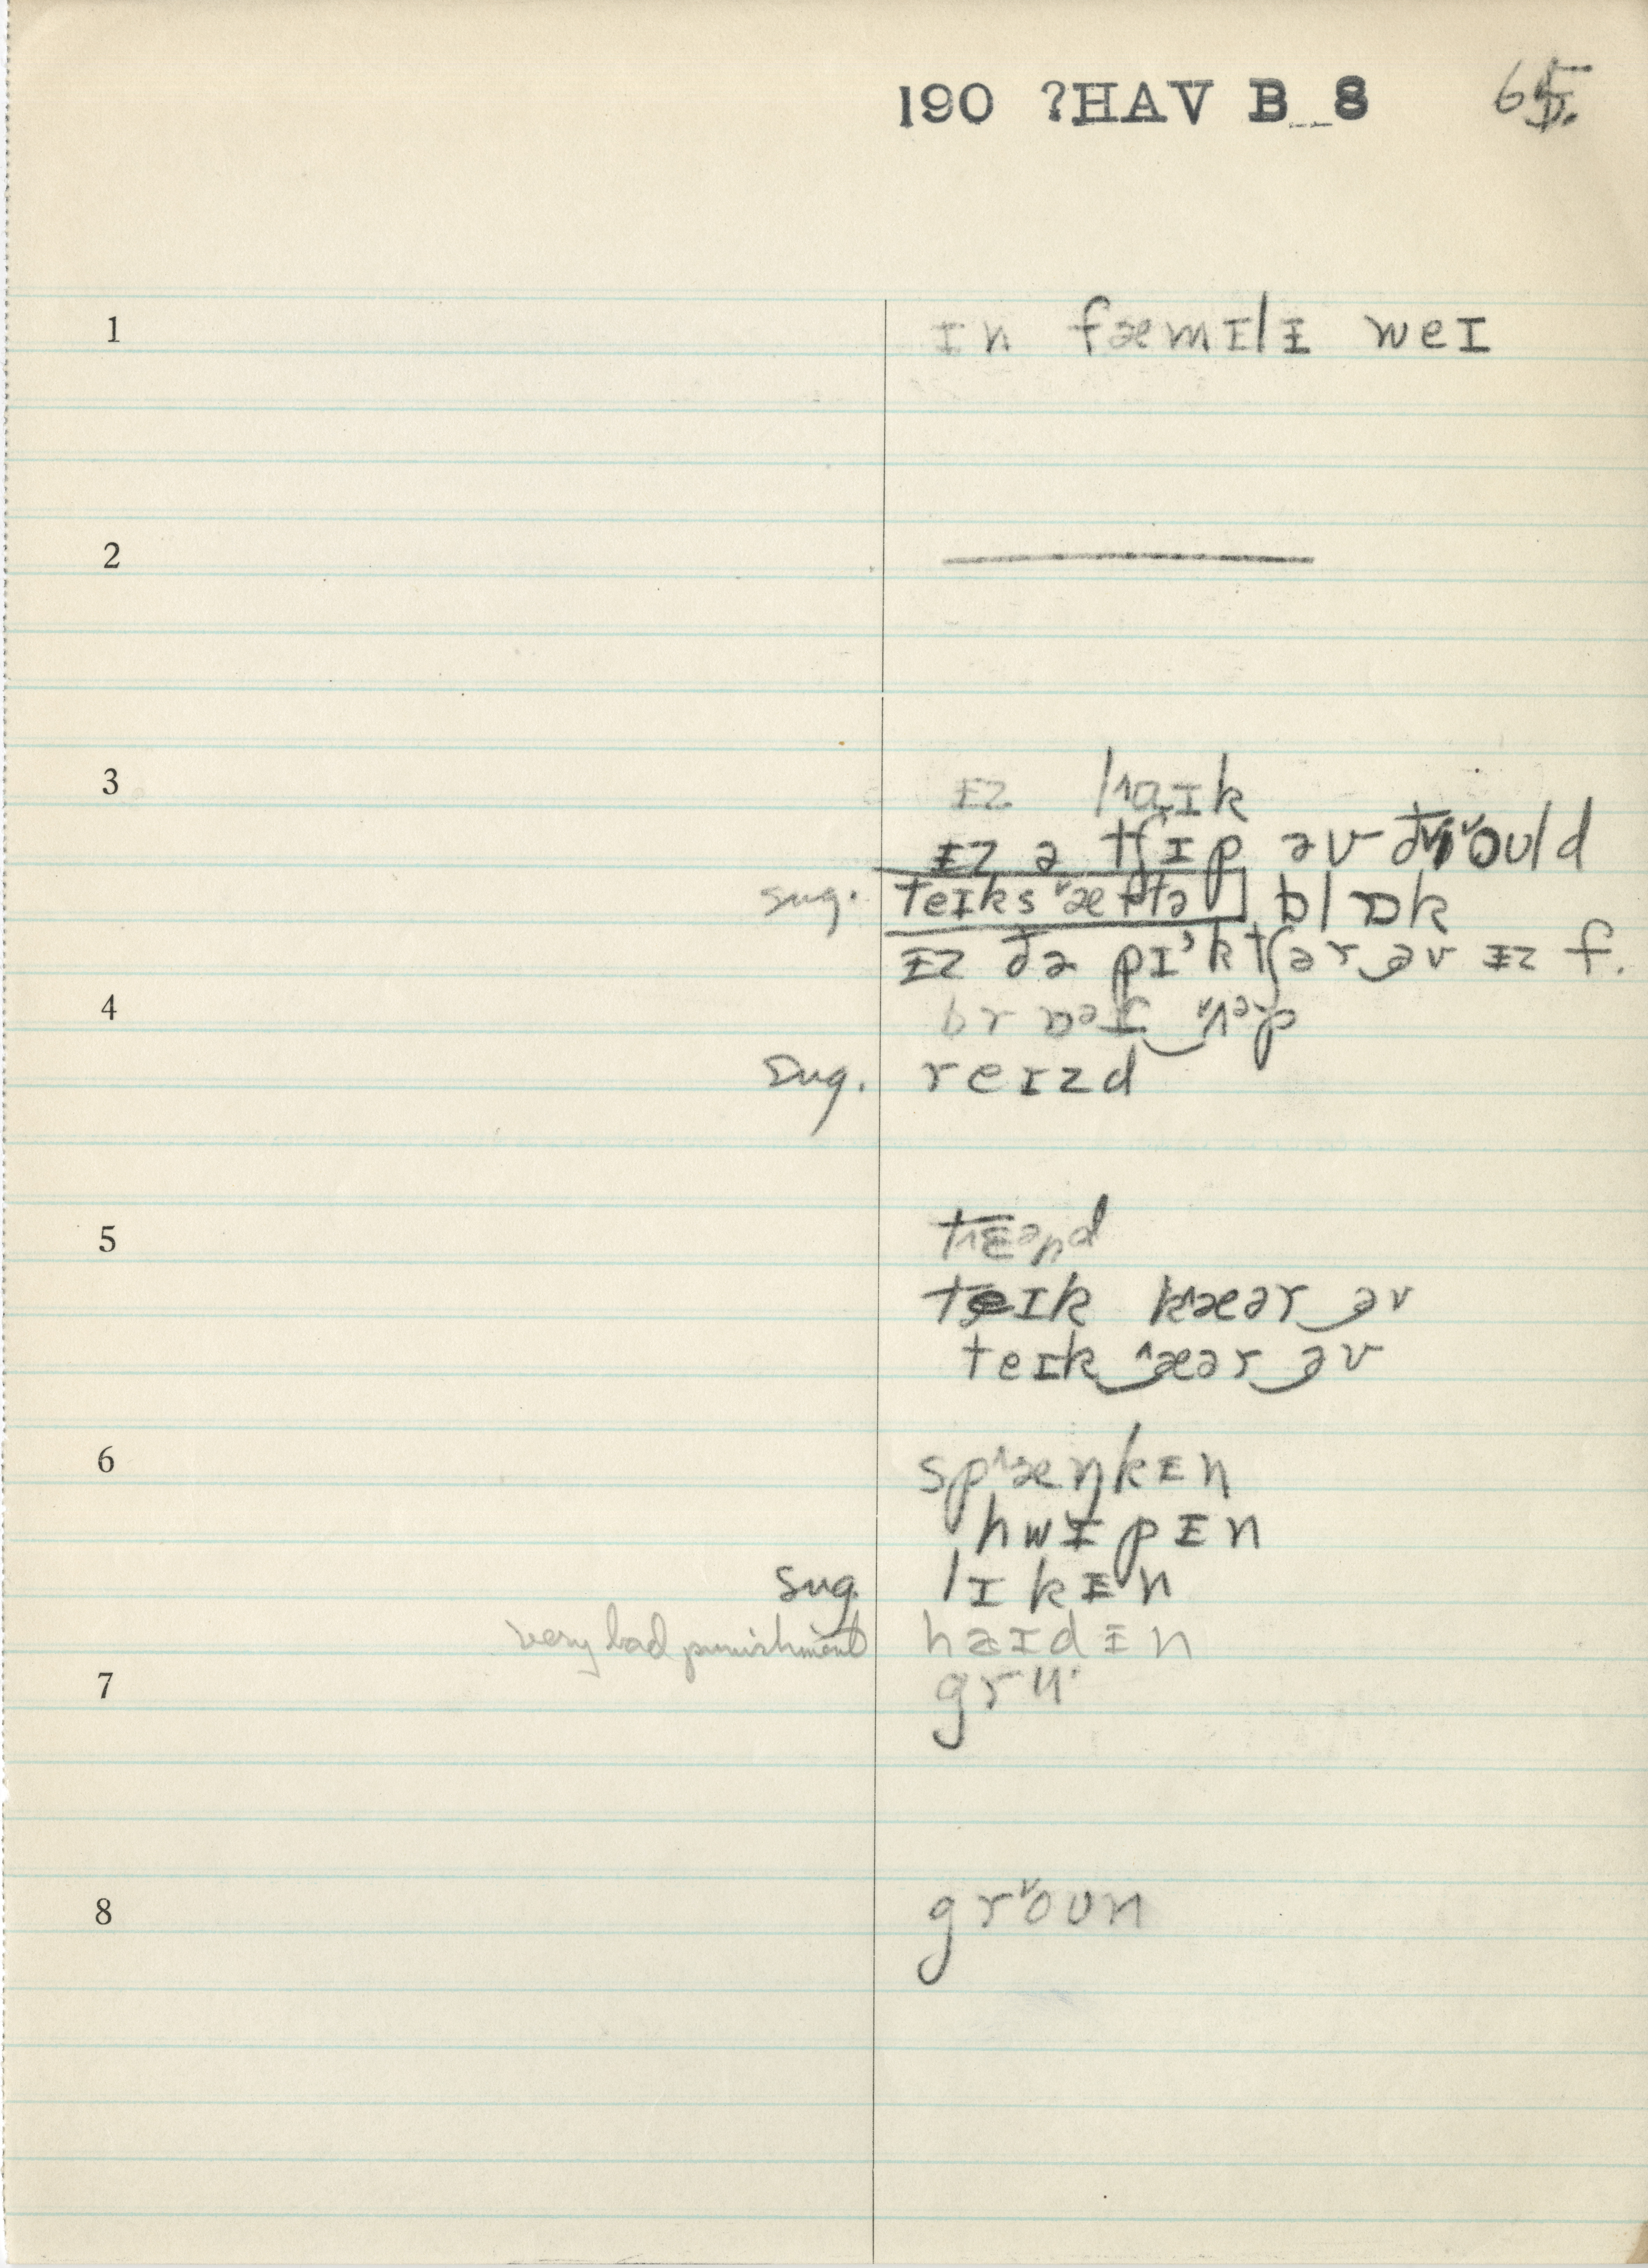 190 ?HAV B 8 65
D.
1 ɪn fæmɪlɨ weɪ
2
3 ɨz l^aɪk
ɨz ə tʃɪp əv ðɪ ˅ould
sug. teɪks ˅æftə blɒk
ɨz ðə pɪ'ktʃər‿əv ɨz f.
4 brɒᵊt‿˅ʌᵊp
sug. reɪzd
5 t^ɛᵊnd
teɪk k^æər‿əv
teɪk‿^æər‿əv
6 sp^æŋkɨn
hwɪpɨn
sug. lɪkɨn
very bad punishment haɪdɨn
7 grʉ·
8 gr˅oʊn